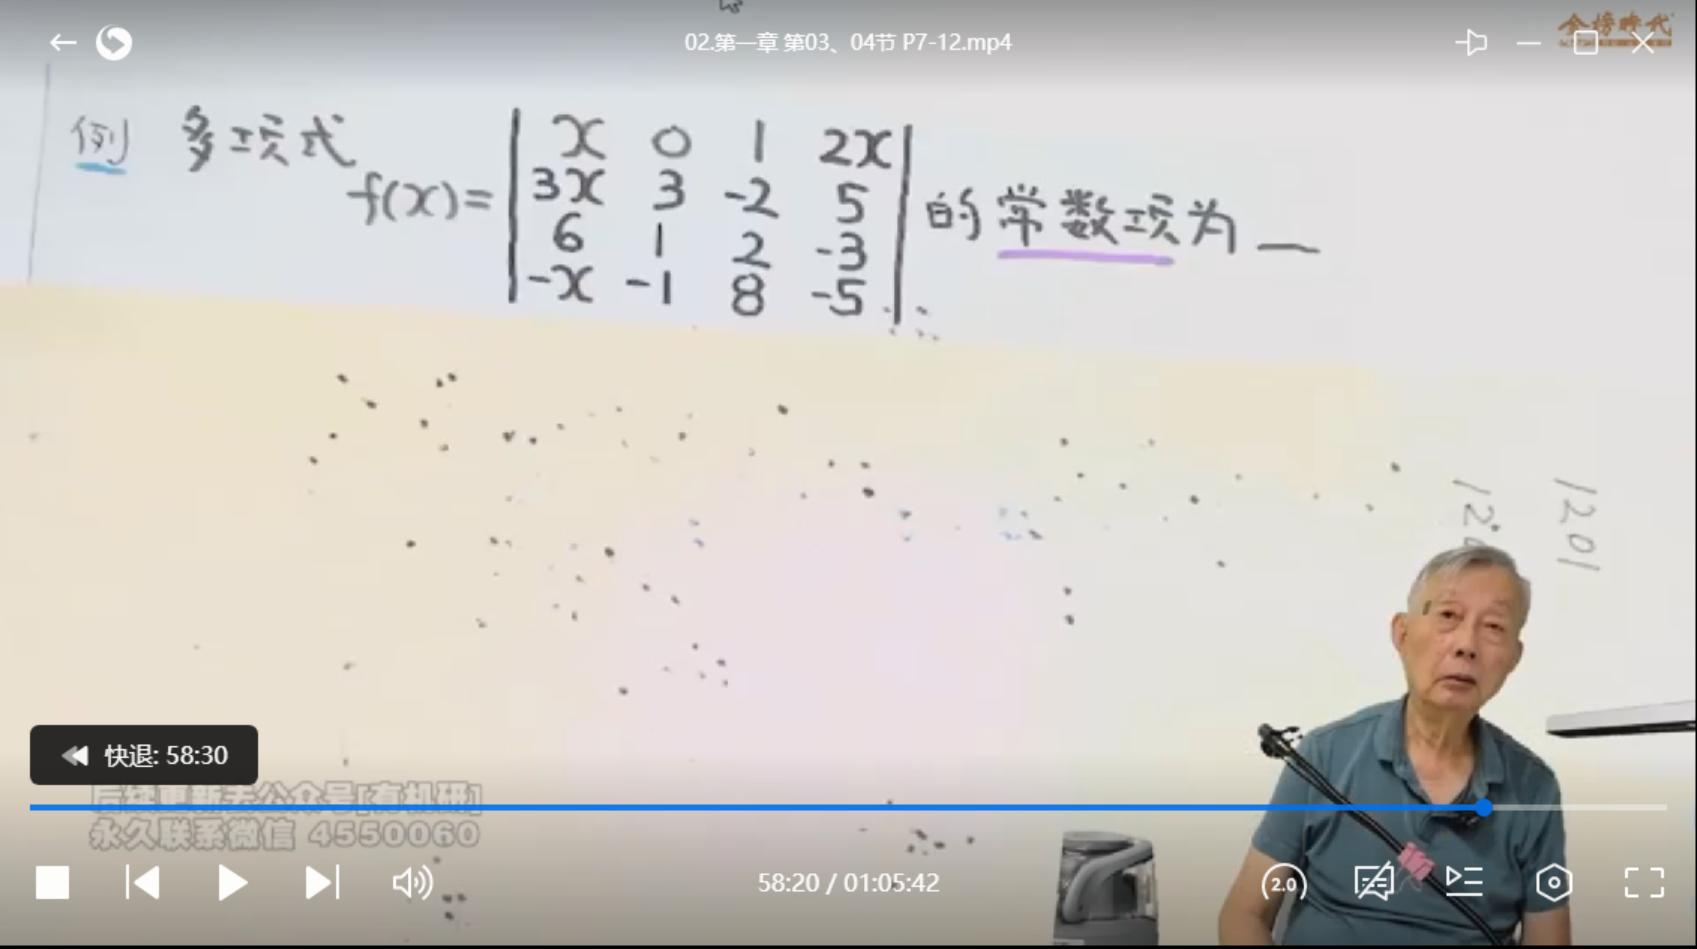 02.第一章 第03、04节 P7-12.mp4
金榜时代
例 多项式
x 0 1 2x
f(x)= 3x 3 -2 5 的常数项为__
6 1 2 -3
-x -1 8 -5
1201
快退: 58:30
后续更新关公众号[有机研]
永久联系微信 4550060
58:20 / 01:05:42
2.0